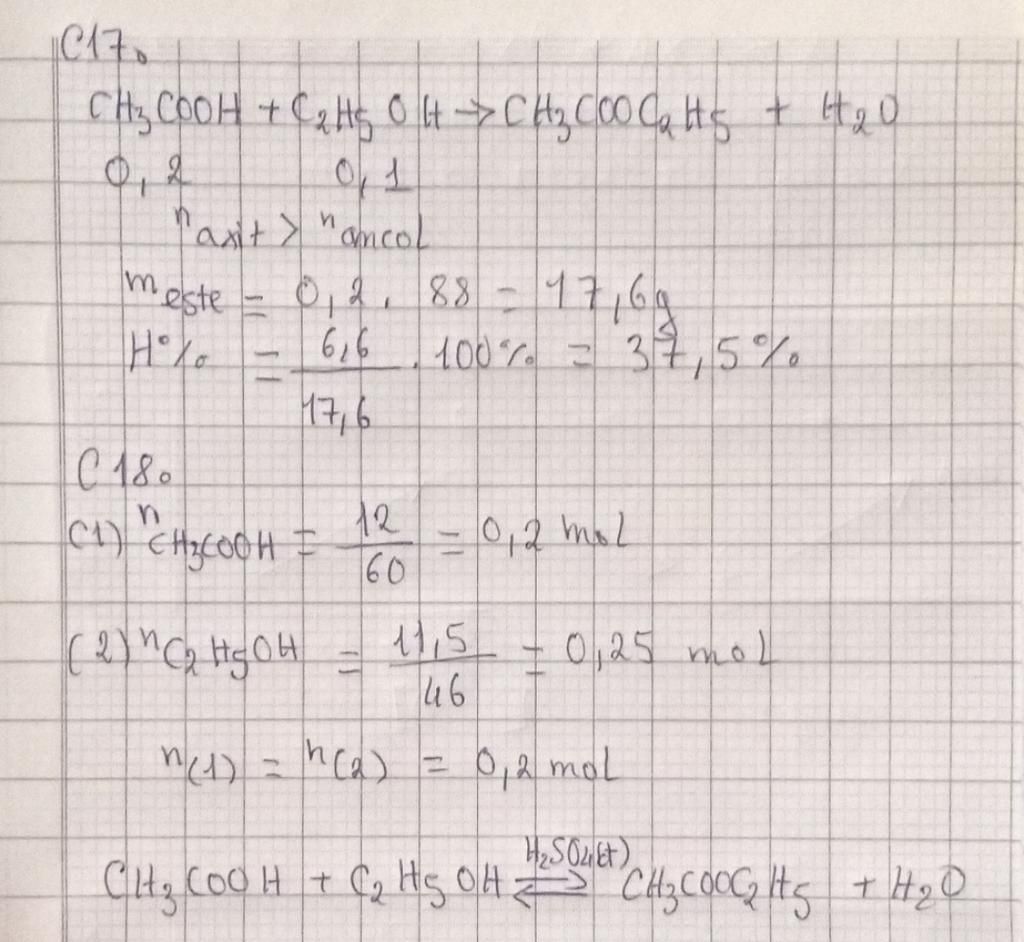 C17.
CH3COOH + C2H5OH → CH3COOC2H5 + H2O
0,2 0,1
naxit > nancol
meste = 0,2 . 88 = 17,6g
H% = 6,6/17,6 . 100% = 37,5%
C18.
(1) nCH3COOH = 12/60 = 0,2 mol
(2) nC2H5OH = 11,5/46 = 0,25 mol
n(1) = n(2) = 0,2 mol
H2SO4(đ)
CH3COOH + C2H5OH ⇌ CH3COOC2H5 + H2O